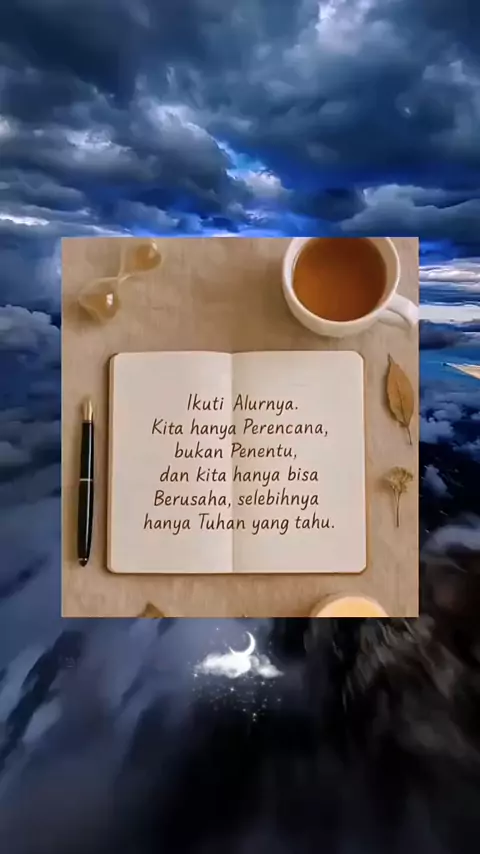 Ikuti Alurnya.
Kita hanya Perencana,
bukan Penentu,
dan kita hanya bisa
Berusaha, selebihnya
hanya Tuhan yang tahu.